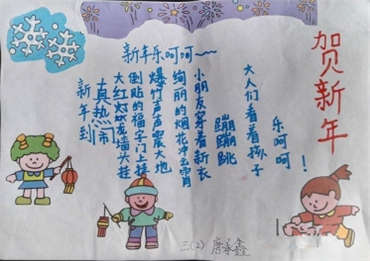 贺新年
新年乐呵呵~~~
新年到
真热闹
大红灯笼墙头挂
倒贴的福字门上
爆竹声声震大地
绚丽的烟花冲云霄
小朋友穿着新衣
蹦蹦跳
大人们看着孩子
乐呵呵!
三(2) 唐 鑫